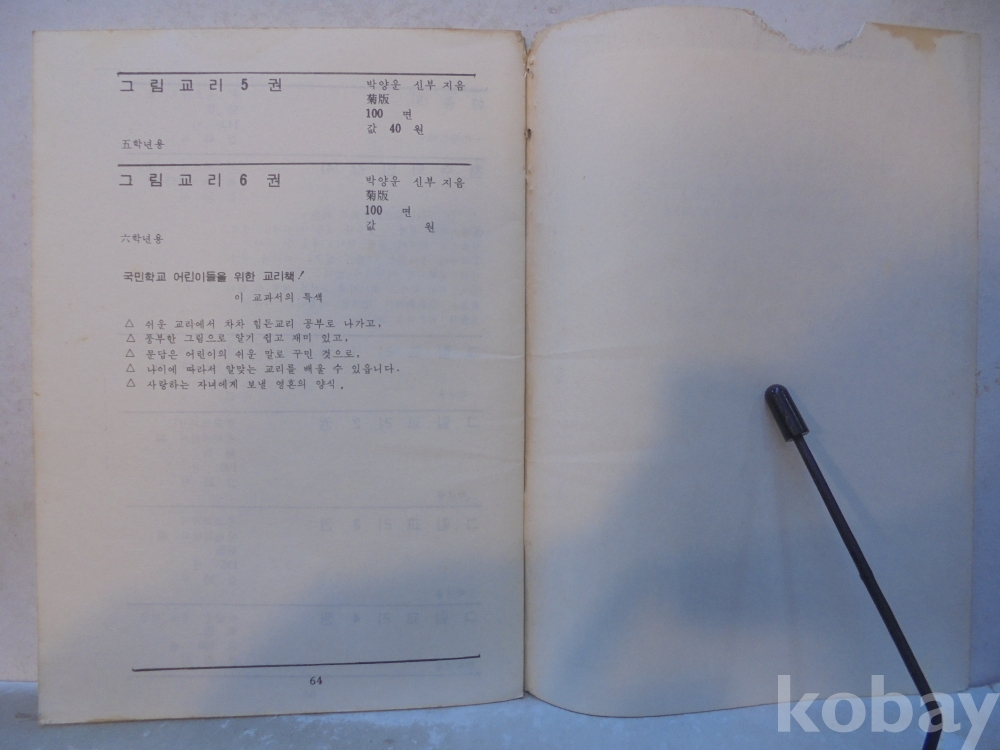 그림교리 5권
박양운 신부 지음
菊版
100 면
값 40 원
五학년용
그림교리 6권
박양운 신부 지음
菊版
100 면
값 원
六학년용
국민학교 어린이들을 위한 교리책!
이 교과서의 특색
△ 쉬운 교리에서 차차 힘든교리 공부로 나가고,
△ 풍부한 그림으로 알기 쉽고 재미 있고,
△ 문답은 어린이의 쉬운 말로 꾸민 것으로,
△ 나이에 따라서 알맞는 교리를 배울 수 있읍니다.
△ 사랑하는 자녀에게 보낼 영혼의 양식.
64
kobay